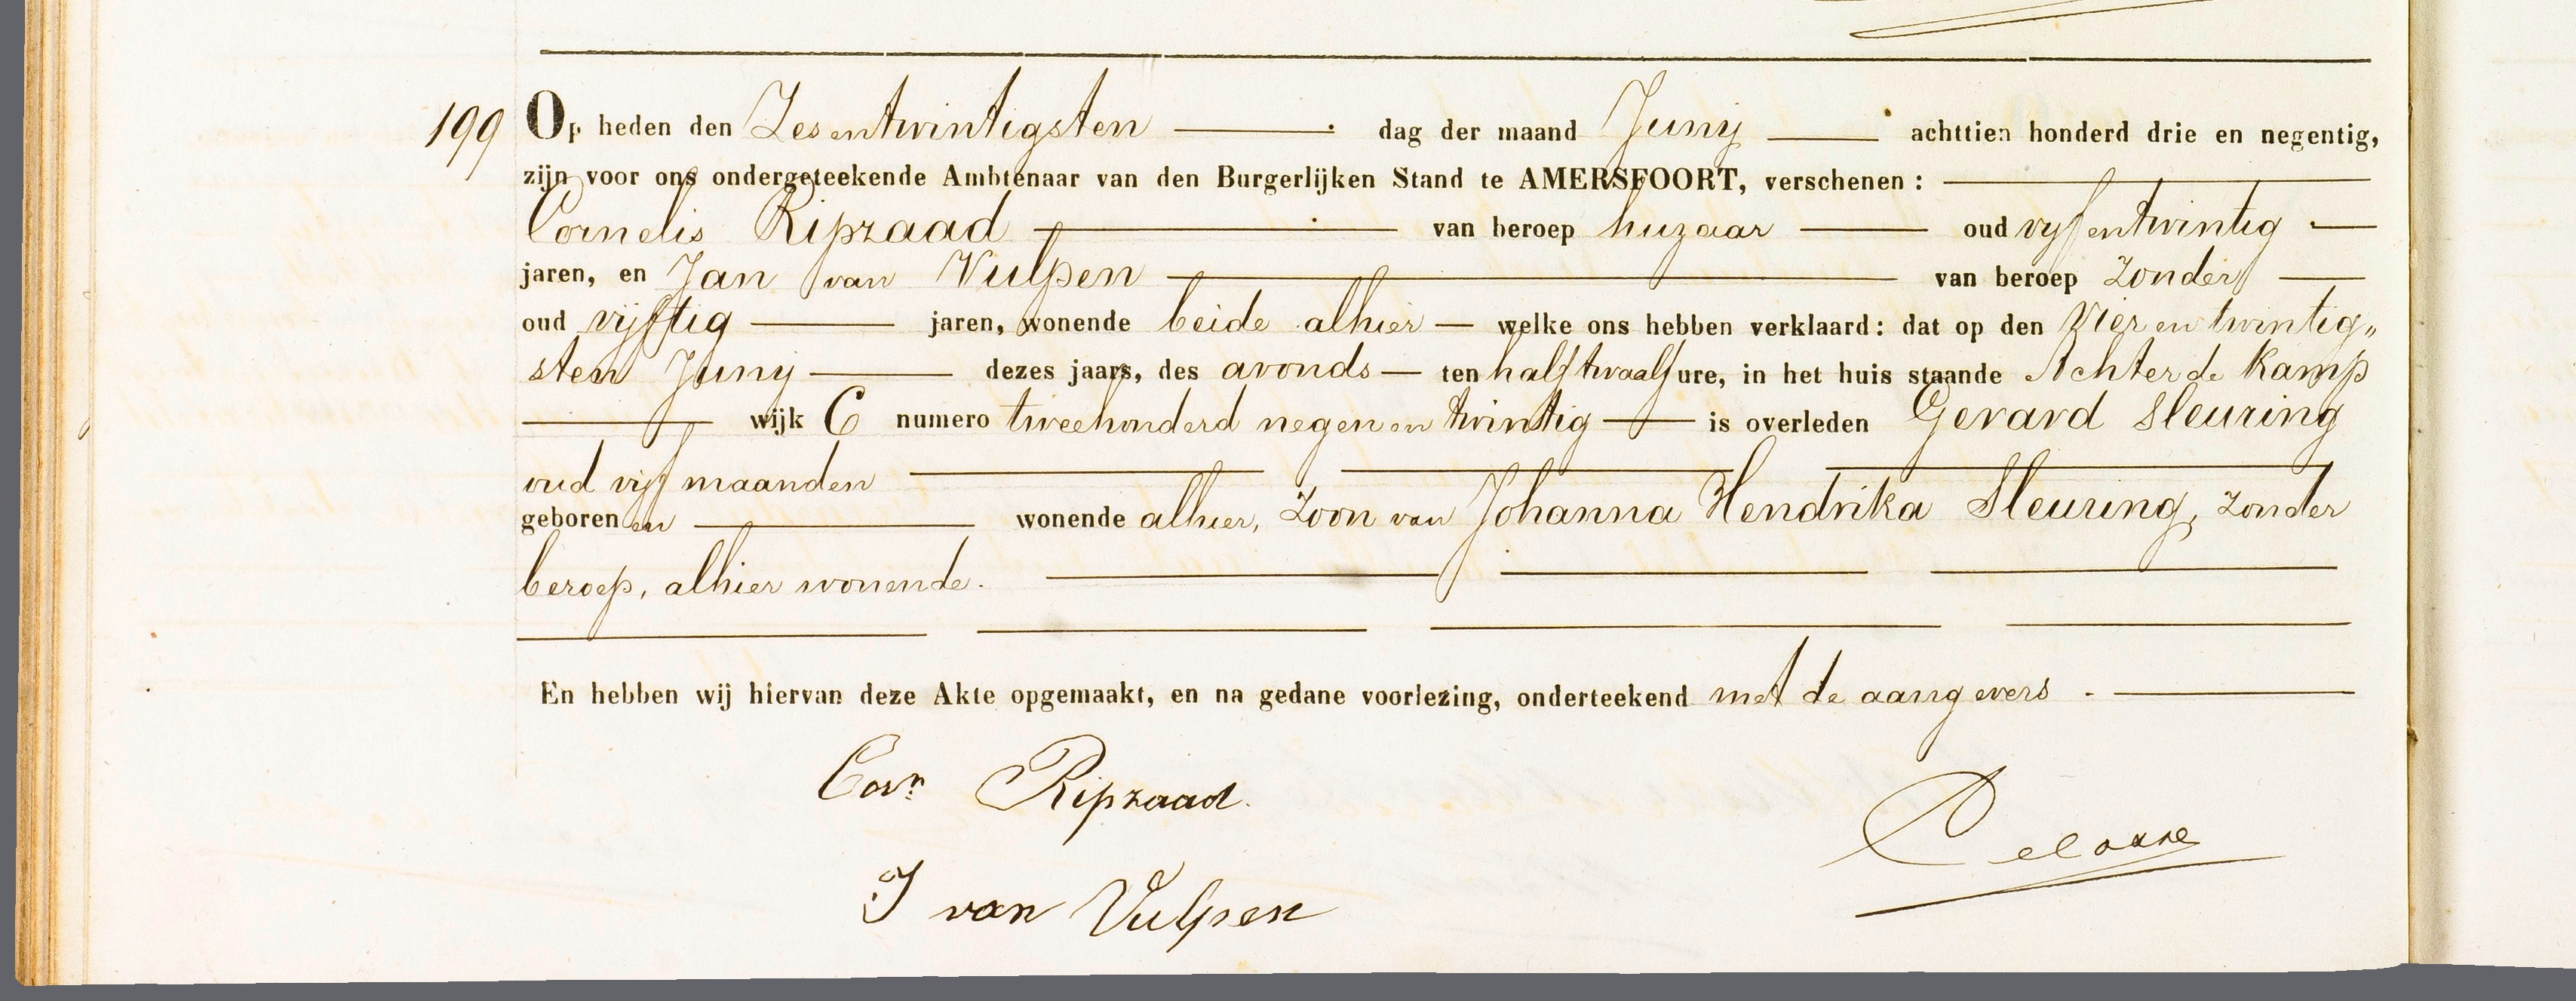 199 Op heden den Zesentwintigsten dag der maand Juny achttien honderd drie en negentig,
zijn voor ons ondergeteekende Ambtenaar van den Burgerlijken Stand te AMERSFOORT, verschenen :
Cornelis Ripzaad van beroep huzaar oud vyfentwintig
jaren, en Jan van Vulpen van beroep zonder
oud vijftig jaren, wonende beide alhier welke ons hebben verklaard: dat op den Vier en twintig„
sten Juny dezes jaars, des avonds ten half twaalf ure, in het huis staande Achter de Kamp
wijk C numero tweehonderd negen en twintig is overleden Gerard Sleuring
oud vyf maanden
geboren en wonende alhier, Zoon van Johanna Hendrika Sleuring, zonder
beroep, alhier wonende.
En hebben wij hiervan deze Akte opgemaakt, en na gedane voorlezing, onderteekend met de aangevers.
Corn Ripzaad.
J van Vulpen